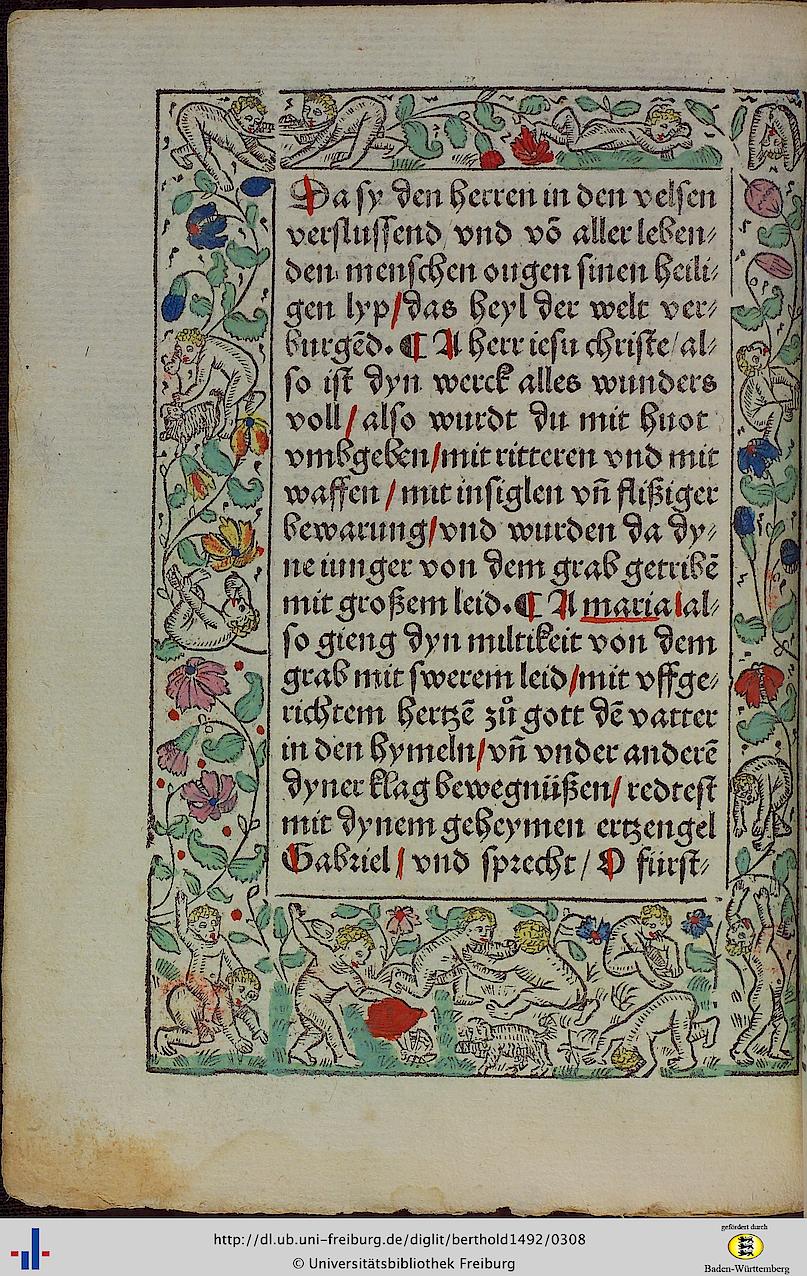 Da sy den herren in den velsen
verslussend/ vnd võ aller leben⸗
den menschen ougen sinen heili⸗
gen lyp/das heyl der welt ver⸗
burgẽd. ¶ A herr iesu christe/al⸗
so ist dyn werck alles wunders
voll/also wurdt du mit huot
vmbgeben/mit ritteren vnd mit
waffen/mit insiglen vñ flißiger
bewarung/vnd wurden da dy⸗
ne iunger von dem grab getribẽ
mit großem leid. ¶ A maria/al⸗
so gieng dyn miltikeit von dem
grab mit swerem leid/mit vffge⸗
richtem hertzẽ zů gott dẽ vatter
in den hymeln/vñ vnder anderẽ
dyner klag bewegnüßen/redtest
mit dynem geheymen ertzengel
Gabriel/vnd sprecht/O fürst⸗
gefördert durch
http://dl.ub.uni-freiburg.de/diglit/berthold1492/0308
© Universitätsbibliothek Freiburg
Baden-Württemberg